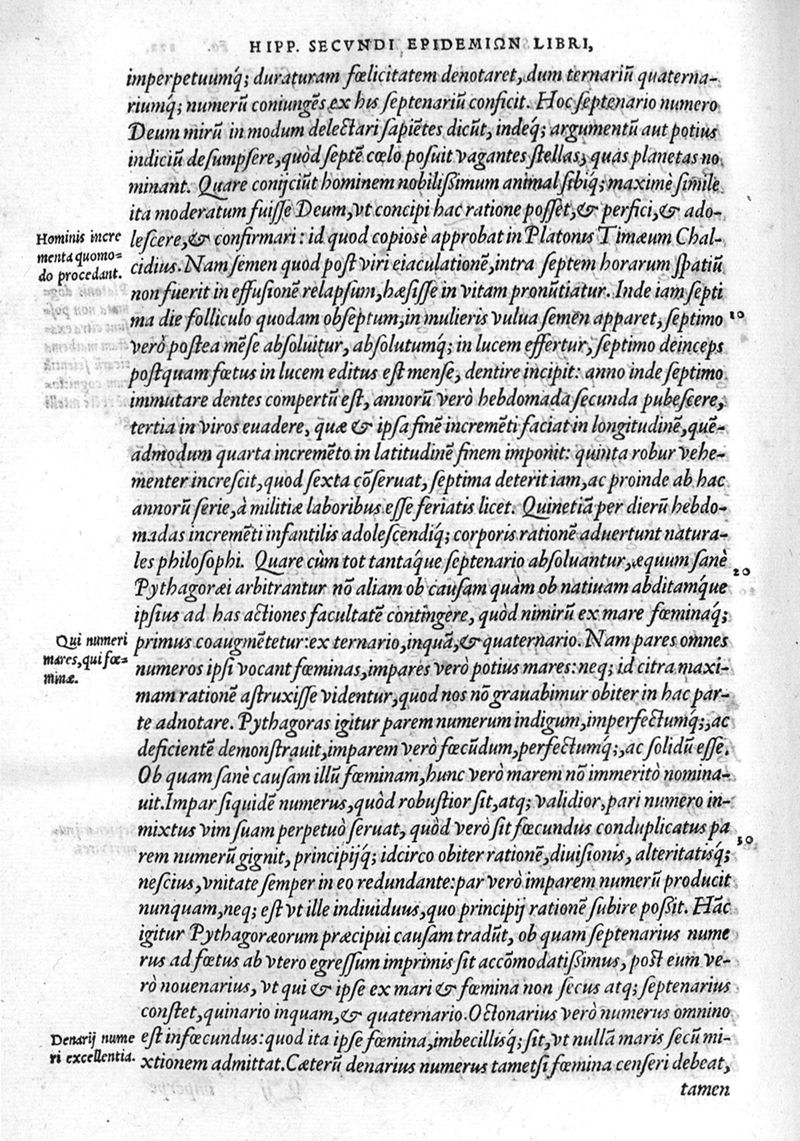 HIPP. SECVNDI EPIDEMIΩN LIBRI,
imperpetuumq́; duraturam fœlicitatem denotaret, dum ternariũ quaterna-
riumq́; numerũ coniungẽs ex his septenariũ conficit. Hoc septenario numero
Deum mirũ in modum delectari sapiẽtes dicũt, indeq́; argumentũ aut potius
indiciũ desumpsere, quòd septẽ cœlo posuit vagantes stellas, quas planetas no
minant. Quare conijciũt hominem nobilißimum animal sibiq́; maximè simile
ita moderatum fuisse Deum, vt concipi hac ratione posset, & perfici, & ado-
Hominis incre
menta quomo=
do procedant.
lescere, & confirmari: id quod copiosè approbat in Platonis Timæum Chal-
cidius. Nam semen quod post viri eiaculationẽ, intra septem horarum spatiũ
non fuerit in effusionẽ relapsum, hæsisse in vitam pronũtiatur. Inde iam septi
ma die folliculo quodam obseptum, in mulieris vulua semen apparet, septimo 10
verò postea mẽse absoluitur, absolutumq́; in lucem effertur, septimo deinceps
postquam fœtus in lucem editus est mense, dentire incipit: anno inde septimo
immutare dentes compertũ est, annorũ verò hebdomada secunda pubescere,
tertia in viros euadere, quæ & ipsa finẽ incremẽti faciat in longitudinẽ, quẽ-
admodum quarta incremẽto in latitudinẽ finem imponit: quinta robur vehe-
menter increscit, quod sexta cõseruat, septima deterit iam, ac proinde ab hac
annorũ serie, à militiæ laboribus esse feriatis licet. Quinetiã per dierũ hebdo-
madas incremẽti infantilis adolescendiq́; corporis rationẽ aduertunt natura-
les philosophi. Quare cùm tot tantáque septenario absoluantur, æquum sanè 20
Pythagoræi arbitrantur nõ aliam ob causam quàm ob natiuam abditamq́ue
ipsius ad has actiones facultatẽ contingere, quòd nimirũ ex mare fœminaq́;
Qui numeri
mares, qui fœ=
minæ.
primus coaugmẽtetur: ex ternario, inquã, & quaternario. Nam pares omnes
numeros ipsi vocant fœminas, impares verò potius mares: neq; id citra maxi-
mam rationẽ astruxisse videntur, quod nos nõ grauabimur obiter in hac par-
te adnotare. Pythagoras igitur parem numerum indigum, imperfectumq́;, ac
deficientẽ demonstrauit, imparem verò fœcũdum, perfectumq́;, ac solidũ esse.
Ob quam sanè causam illũ fœminam, hunc verò marem nõ immeritò nomina-
uit. Impar siquidẽ numerus, quòd robustior sit, atq; validior, pari numero in-
mixtus vim suam perpetuò seruat, quòd verò sit fœcundus conduplicatus pa
rem numerũ gignit, principijq́; idcirco obiter rationẽ, diuisionis, alteritatisq́; 30
nescius, vnitate semper in eo redundante: par verò imparem numerũ producit
nunquam, neq; est vt ille indiuiduus, quo principij rationẽ subire poßit. Hãc
igitur Pythagoræorum præcipui causam tradũt, ob quam septenarius nume
rus ad fœtus ab vtero egressum imprimis sit accõmodatißimus, post eum ve-
rò nouenarius, vt qui & ipse ex mari & fœmina non secus atq; septenarius
constet, quinario inquam, & quaternario. Octonarius verò numerus omnino
Denarij nume
ri excellentia.
est infœcundus: quod ita ipse fœmina, imbecillisq́; sit, vt nullã maris secũ mi-
xtionem admittat. Cæterũ denarius numerus tametsi fœmina censeri debeat,
tamen